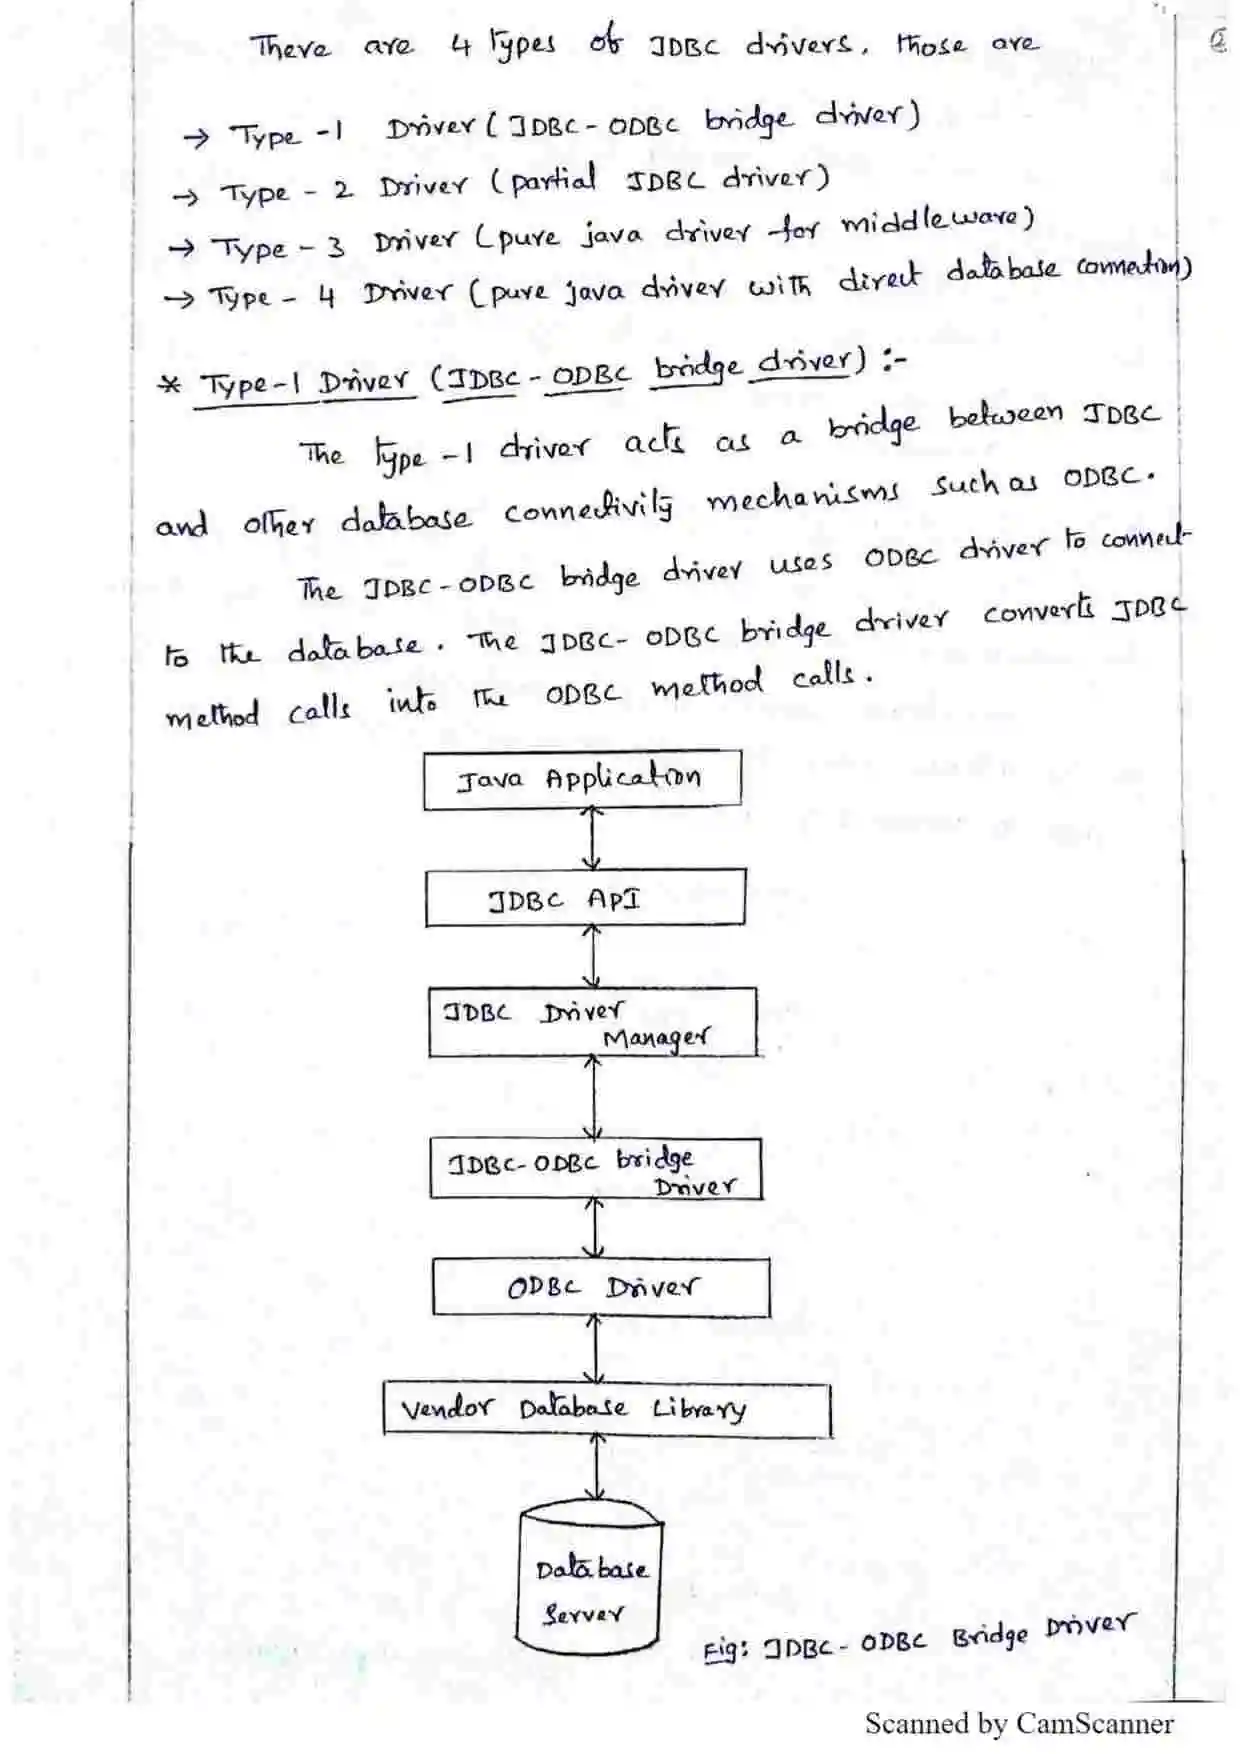 There are 4 types of JDBC drivers. Those are
2
→ Type -1 Driver (JDBC - ODBC bridge driver)
→ Type - 2 Driver (partial JDBC driver)
→ Type - 3 Driver (pure java driver for middleware)
→ Type - 4 Driver (pure java driver with direct database connection)
* Type-1 Driver (JDBC - ODBC bridge driver) :-
The type -1 driver acts as a bridge between JDBC
and other database connectivity mechanisms such as ODBC.
The JDBC - ODBC bridge driver uses ODBC driver to connect
to the database. The JDBC- ODBC bridge driver converts JDBC
method calls into the ODBC method calls.
Java Application
JDBC API
JDBC Driver
Manager
JDBC-ODBC bridge
Driver
ODBC Driver
Vendor Database Library
Database
Server
Fig: JDBC - ODBC Bridge Driver
Scanned by CamScanner